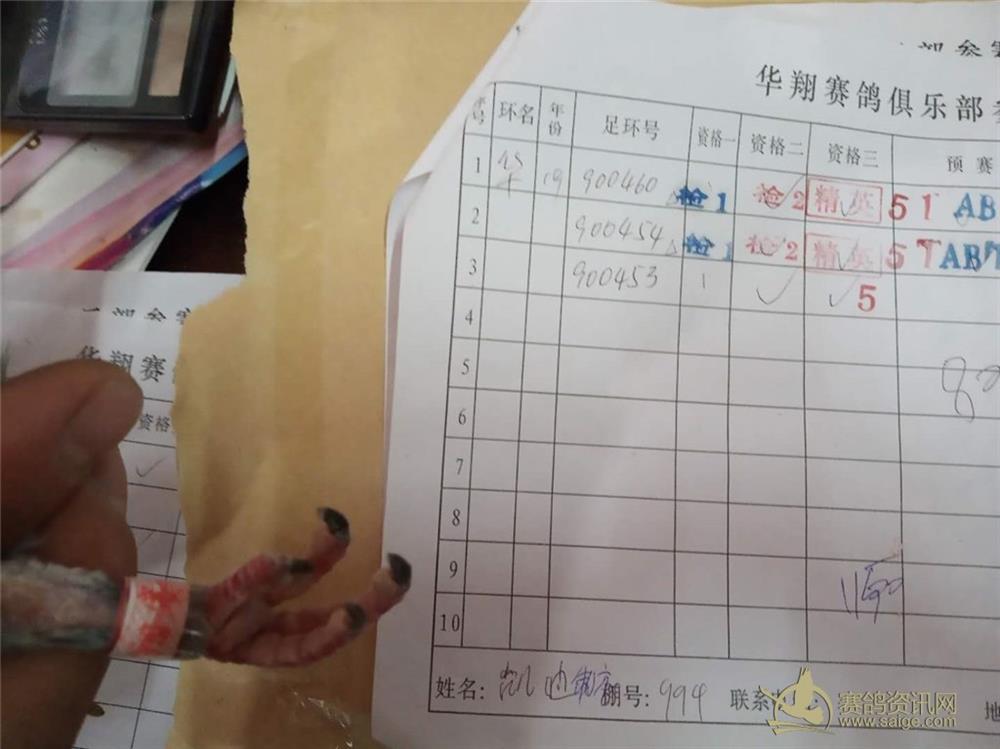 华翔赛鸽俱乐部
序号 环名 年份 足环号 资格一 资格二 资格三 预赛
1 华 19 900460 检1 检2 精英 5 1 AB
2 900454 检1 检2 精英 5 1 AB1
3 900453 1 ✓ ✓ 5
4
5
6
7
8
9
10
姓名: 凯迪 棚号: 994 联系
华翔赛
资格
✓
赛鸽资讯网
www.saige.com